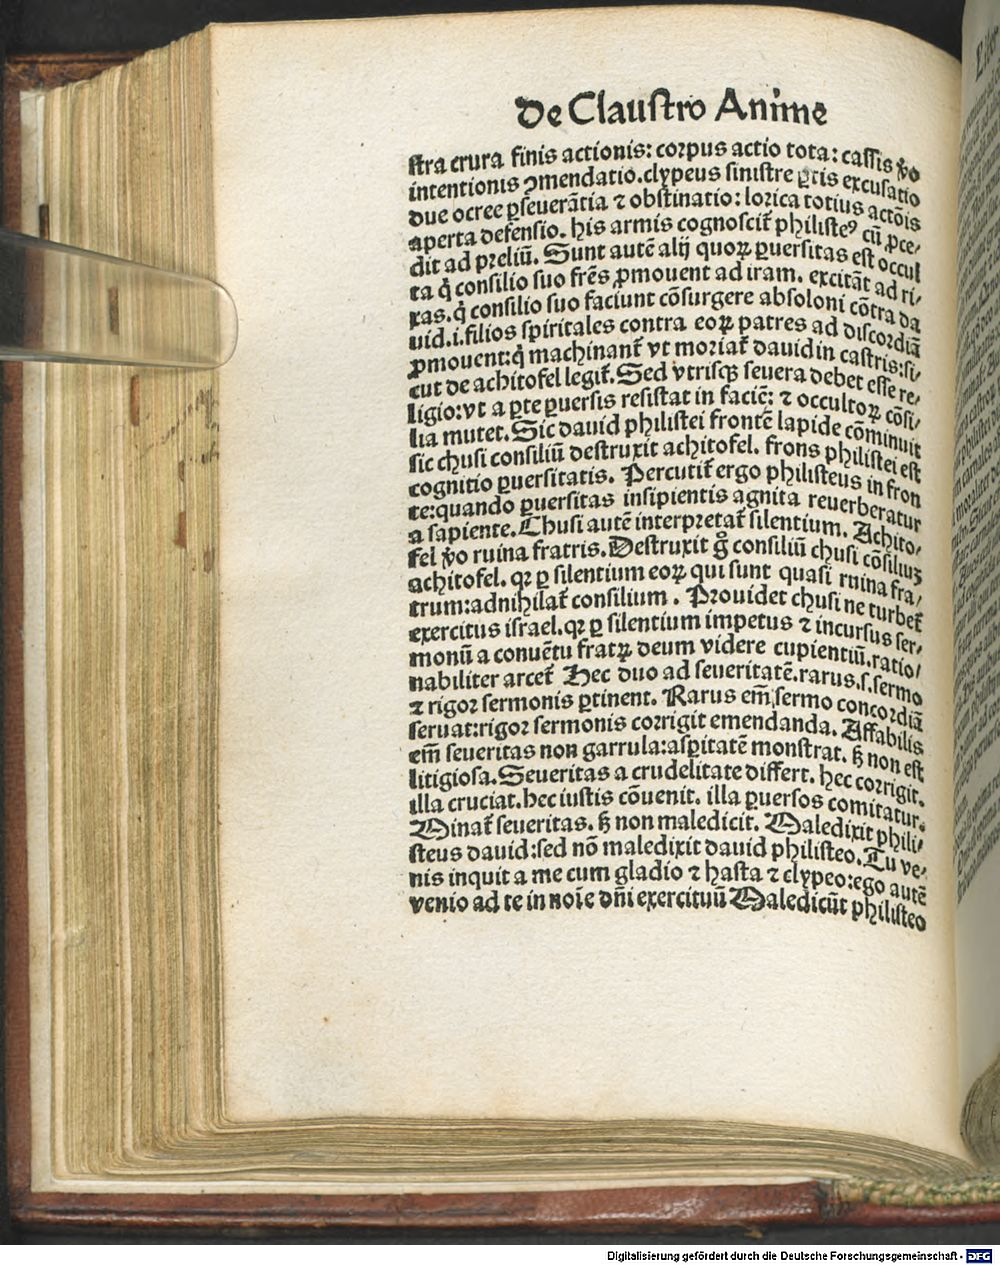 De Claustro Anime
stra crura finis actionis: corpus actio tota: cassis v̄o
intentionis ꝯmendatio. clypeus sinistre ꝑtis excusatio
due ocree ꝑseuerãtia ⁊ obstinatio: lorica totius actõis
aperta defensio. his armis cognoscit᷑ philisteꝰ cũ ꝓce⸗
dit ad preliũ. Sunt autẽ alij quoꝝ ꝑuersitas est occul
ta q̇ consilio suo fr̃es ꝓmouent ad iram. excitãt ad ri⸗
xas. q̇ consilio suo faciunt cõsurgere absoloni cõtra da
uid. i. filios spiritales contra eoꝝ patres ad discordiã
ꝓmouent: q̇ machinant᷑ vt moriat᷑ dauid in castris: si⸗
cut de achitofel legit᷑. Sed vtrisqꝫ seuera debet esse re⸗
ligio: vt a ꝑte ꝑuersis resistat in faciẽ: ⁊ occultoꝝ cõsi⸗
lia mutet. Sic dauid philistei frontẽ lapide cõminuit
sic chusi consiliũ destruxit achitofel. frons philistei est
cognitio ꝑuersitatis. Percutit᷑ ergo philisteus in fron
te: quando ꝑuersitas insipientis agnita reuerberatur
a sapiente. Chusi autẽ interpretat᷑ silentium. Achito⸗
fel v̄o ruina fratris. Destruxit gͦ consiliũ chusi cõsiliuꝫ
achitofel. qꝛ ꝑ silentium eoꝝ qui sunt quasi ruina fra⸗
trum: adnihilat᷑ consilium. Prouidet chusi ne turbet᷑
exercitus israel. qꝛ ꝑ silentium impetus ⁊ incursus ser⸗
monũ a conuẽtu fratꝝ deum videre cupientiũ. ratio⸗
nabiliter arcet᷑ Hec duo ad seueritatẽ. rarus. s. sermo
⁊ rigor sermonis ꝑtinent. Rarus em̃ sermo concordiã
seruat: rigor sermonis corrigit emendanda. Affabilis
em̃ seueritas non garrula: asꝑitatẽ monstrat. ꝭ non est
litigiosa. Seueritas a crudelitate differt. hec corrigit.
illa cruciat. hec iustis cõuenit. illa ꝑuersos comitatur.
Minat᷑ seueritas. ꝭ non maledicit. Maledixit phili⸗
steus dauid: sed nõ maledixit dauid philisteo. Tu ve⸗
nis inquit a me cum gladio ⁊ hasta ⁊ clypeo: ego autẽ
venio ad te in noĩe dñi exercituũ Maledicũt philisteo
Digitalisierung gefördert durch die Deutsche Forschungsgemeinschaft - DFG